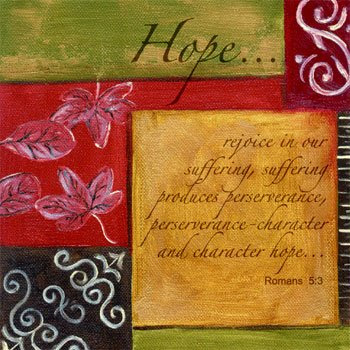 Hope...
rejoice in our
suffering, suffering
produces perserverance,
perserverance-character
and character hope...
Romans 5:3